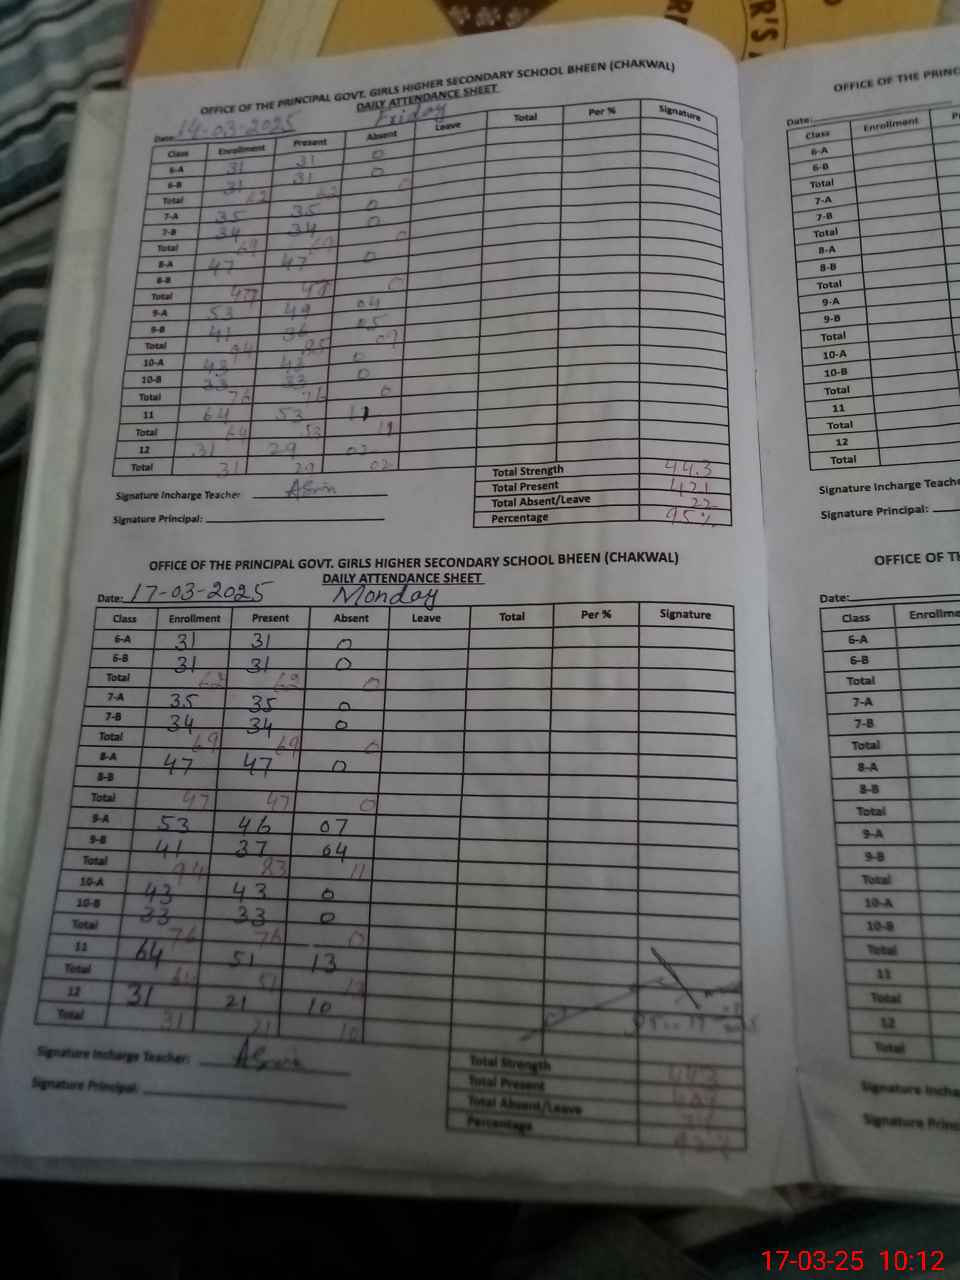 OFFICE OF THE PRINCIPAL GOVT. GIRLS HIGHER SECONDARY SCHOOL BHEEN (CHAKWAL)
DAILY ATTENDANCE SHEET
Date: 14-03-2025 Friday
Class Enrollment Present Absent Leave Total Per % Signature
6-A 31 31 0
6-B 31 31 0
Total 62 62 0
7-A 35 35 0
7-B 34 34 0
Total 69 69 0
8-A 47 47 0
8-B
Total 47 47 0
9-A 53 49 04
9-B 41 36 05
Total 94 85 09
10-A 43 43 0
10-B 33 33 0
Total 76 76 0
11 64 53 11
Total 64 53 11
12 31 29 02
Total 31 29 02
Total Strength 443
Total Present 421
Total Absent/Leave 22
Percentage 95%
Signature Incharge Teacher
Signature Principal:
OFFICE OF THE PRINCIPAL GOVT. GIRLS HIGHER SECONDARY SCHOOL BHEEN (CHAKWAL)
DAILY ATTENDANCE SHEET
Date: 17-03-2025 Monday
Class Enrollment Present Absent Leave Total Per % Signature
6-A 31 31 0
6-B 31 31 0
Total 62 62 0
7-A 35 35 0
7-B 34 34 0
Total 69 69 0
8-A 47 47 0
8-B
Total 47 47 0
9-A 53 46 07
9-B 41 37 04
Total 94 83 11
10-A 43 43 0
10-B 33 33 0
Total 76 76 0
11 64 51 13
Total 64 51 13
12 31 21 10
Total 31 21 10
Signature Incharge Teacher:
Signature Principal:
Total Strength 443
Total Present
Total Absent/Leave
Percentage
OFFICE OF THE PRINC
Date:
Class Enrollment P
6-A
6-B
Total
7-A
7-B
Total
8-A
8-B
Total
9-A
9-B
Total
10-A
10-B
Total
11
Total
12
Total
Signature Incharge Teache
Signature Principal:
OFFICE OF T
Date:
Class Enrollme
6-A
6-B
Total
7-A
7-B
Total
8-A
8-B
Total
9-A
9-B
Total
10-A
10-B
Total
11
Total
12
Total
Signature Incha
Signature Princ
17-03-25 10:12